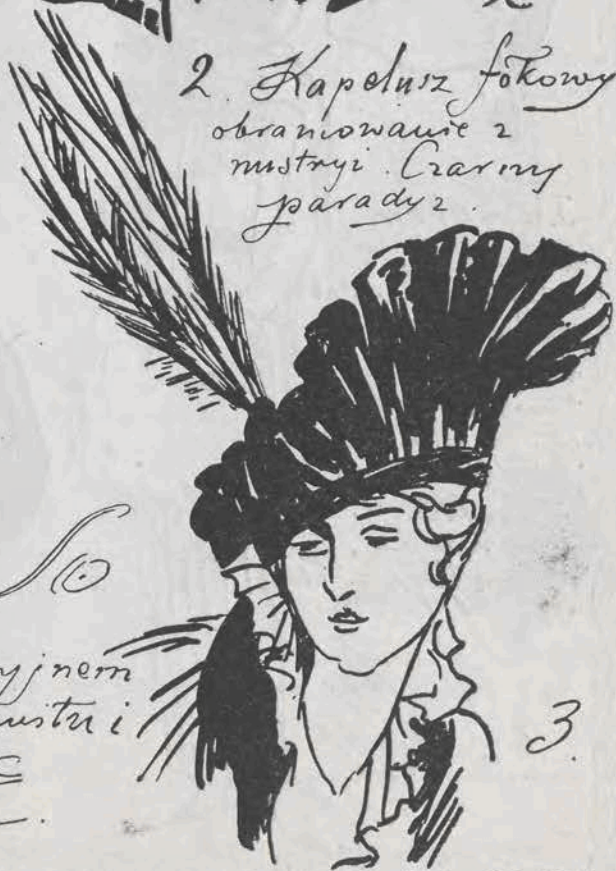 2. Kapelusz fokowy
obramowanie z
nustryi. Czarny
paradyz.
yjnem
3.